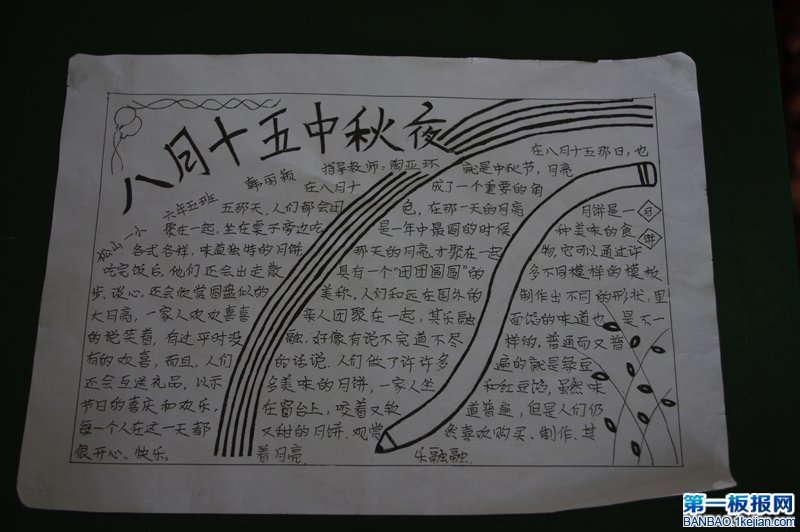 八月十五中秋夜
松山一小 六年五班 韩雨颖 指导教师:周亚环
在八月十
五那天,人们都会团
聚在一起,坐在桌子旁边吃
各式各样,味道独特的月饼,
吃完饭后,他们还会出走散
步、谈心,还会欣赏圆盘似的
大月亮,一家人欢欢喜喜
的说笑着,有过平时没
有的欢喜,而且,人们
还会互送礼品,以示
节日的喜庆和欢乐,
每一个人在这一天都
很开心、快乐。
在八月十五那日,也
就是中秋节,月亮
成了一个重要的角
色,在那一天的月亮
是一年中最圆的时候
那天的月亮,才聚在一起
具有一个"团团圆圆"的
美称,人们和远在国外的
亲人团聚在一起,其乐融
融.好像有说不完道不尽
的话说.人们做了许许多
多美味的月饼,一家人坐
在窗台上,咬着又软
又甜的月饼.观赏
着月亮.
月饼
月饼是一
种美味的食
物,它可以通过许
多不同模样的模板
制作出不同的形状,里
面馅的味道也是不一
样的,普通而又普
遍的就是绿豆
和红豆馅,虽然味
道普遍,但是人们仍
然喜欢购买、制作.其
乐融融.
第一板报网
BANBAO.1kejian.com